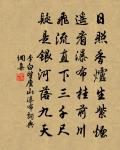 日照香爐生紫煙
遙看瀑布挂前川
飛流直下三千尺
疑是銀河落九天
李白望廬山瀑布詞典
網集